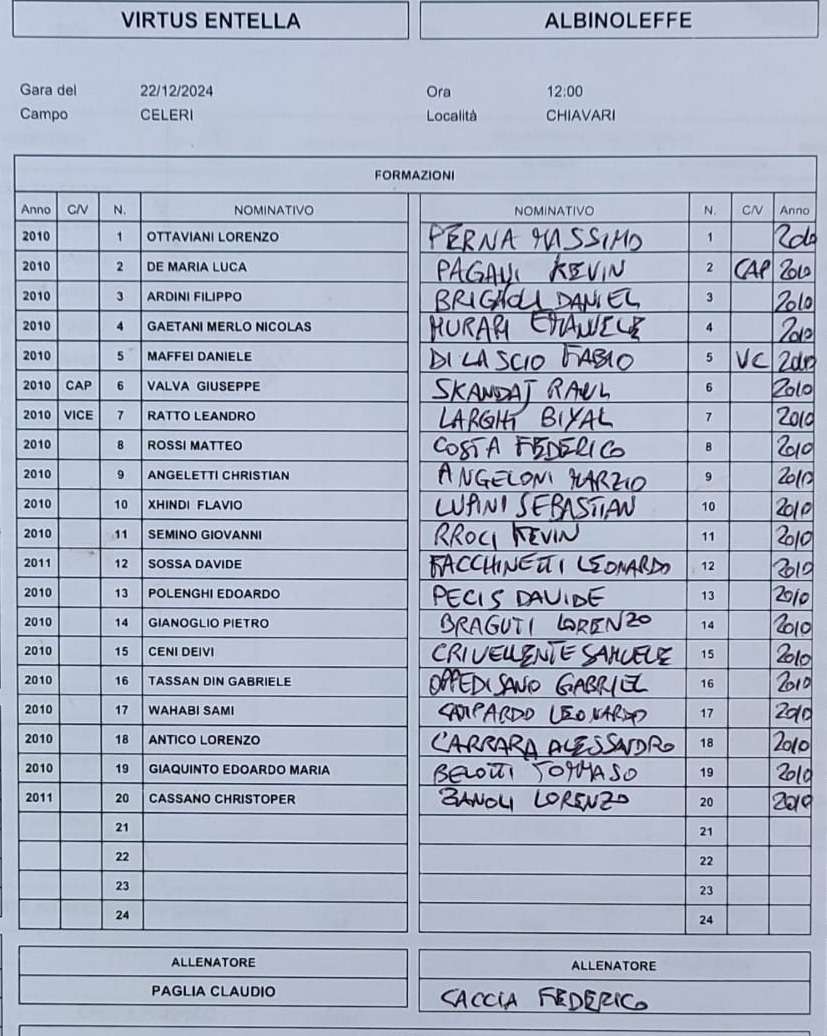 VIRTUS ENTELLA ALBINOLEFFE
Gara del 22/12/2024 Ora 12:00
Campo CELERI Località CHIAVARI
FORMAZIONI
Anno C/V N. NOMINATIVO NOMINATIVO N. C/V Anno
2010 1 OTTAVIANI LORENZO PERNA MASSIMO 1 2010
2010 2 DE MARIA LUCA PAGANI KEVIN 2 CAP 2010
2010 3 ARDINI FILIPPO BRIGNOLI DANIEL 3 2010
2010 4 GAETANI MERLO NICOLAS MURARI EMANUELE 4 2010
2010 5 MAFFEI DANIELE DI LASCIO FABIO 5 VC 2010
2010 CAP 6 VALVA GIUSEPPE SKANDAJ RAUL 6 2010
2010 VICE 7 RATTO LEANDRO LARGHI 7 2010
2010 8 ROSSI MATTEO COSTA FEDERICO 8 2010
2010 9 ANGELETTI CHRISTIAN ANGELONI MARZIO 9 2010
2010 10 XHINDI FLAVIO LUPINI SEBASTIAN 10 2010
2010 11 SEMINO GIOVANNI RROCI KEVIN 11 2010
2011 12 SOSSA DAVIDE FACCHINETTI LEONARDO 12 2010
2010 13 POLENGHI EDOARDO PECIS DAVIDE 13 2010
2010 14 GIANOGLIO PIETRO BRAGUTI LORENZO 14 2010
2010 15 CENI DEIVI CRIVELLENTE SAMUELE 15 2010
2010 16 TASSAN DIN GABRIELE OPPEDISANO GABRIEL 16 2010
2010 17 WAHABI SAMI LEONARDO 17 2010
2010 18 ANTICO LORENZO CARRARA ALESSANDRO 18 2010
2010 19 GIAQUINTO EDOARDO MARIA BELOTTI TOMMASO 19 2010
2011 20 CASSANO CHRISTOPER ZANOLI LORENZO 20 2010
21 21
22 22
23 23
24 24
ALLENATORE ALLENATORE
PAGLIA CLAUDIO CACCIA FEDERICO